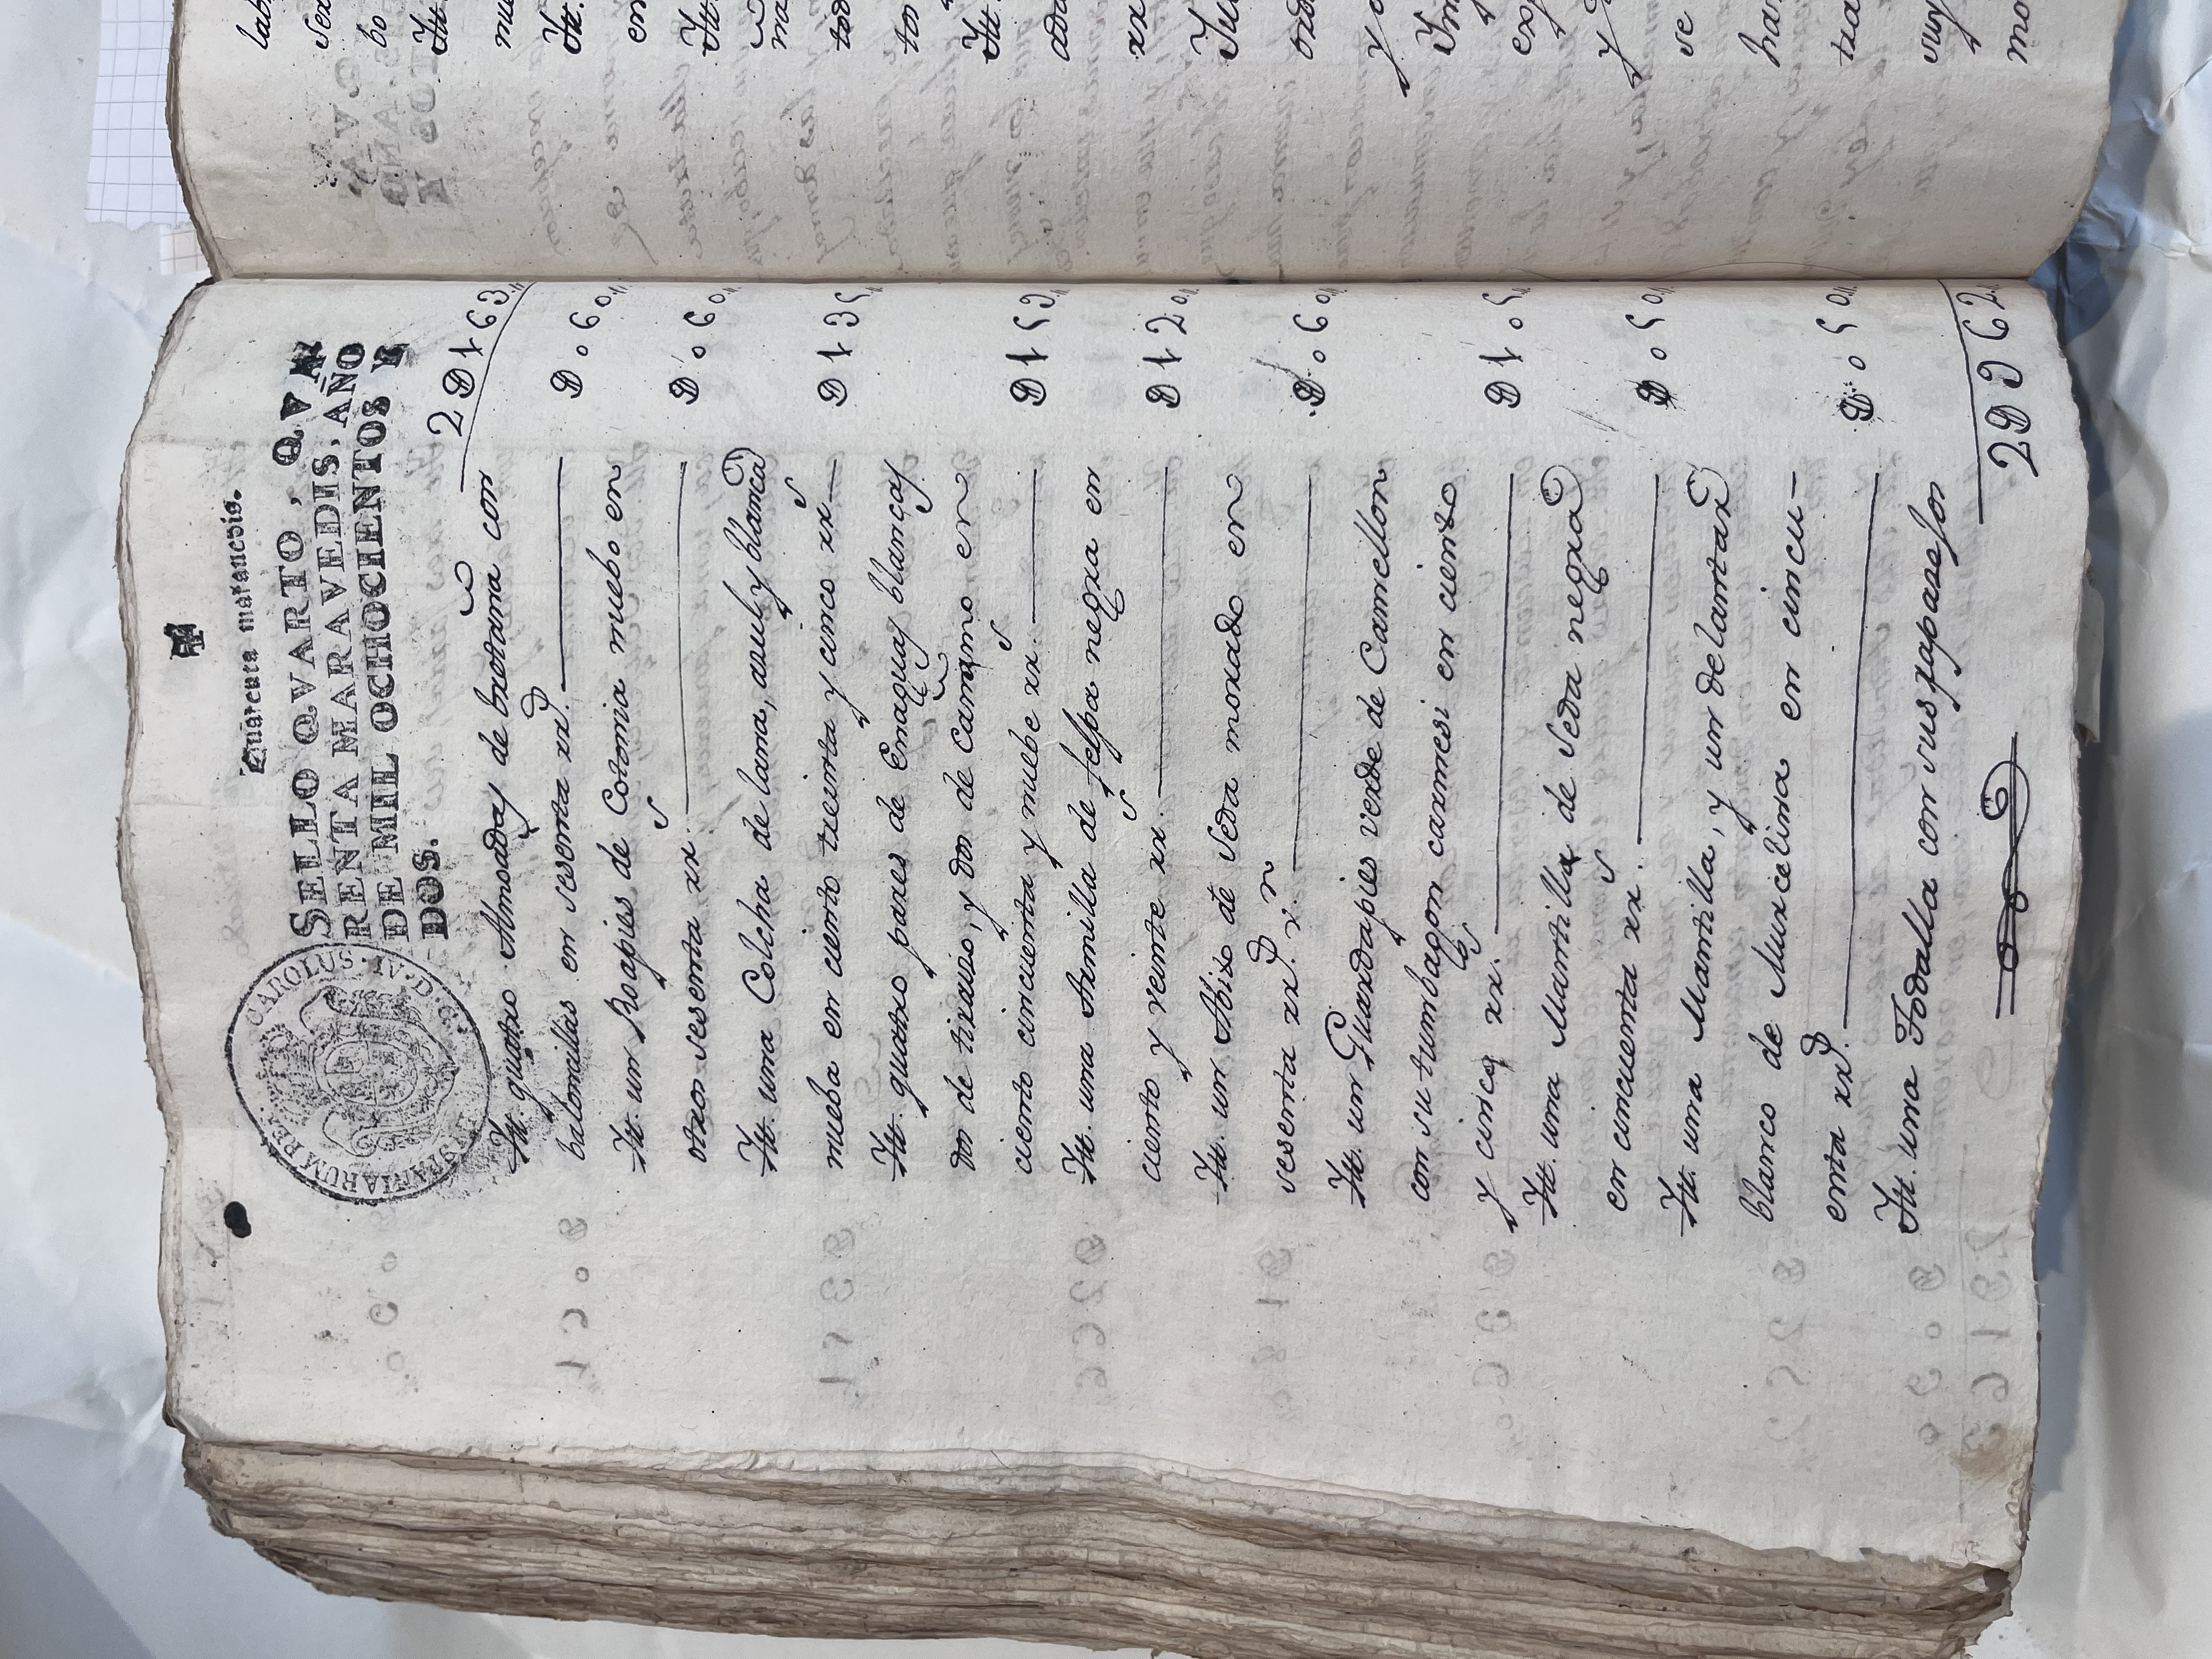 Quarenta maravedis.
SELLO QVARTO, QVA
RENTA MARAVEDIS, AÑO
DE MIL OCHOCIENTOS Y
DOS.
CAROLUS IV D G HISPANIARUM REX
2D163
Itt. quatro Almoadas de bretaña con
en sesenta rrs. D060
Itt. un Roapies de Cotonia nuebo en
otros sesenta rrs. D060
Itt. una Colcha de lana, azul y blanca
nueba en ciento treinta y cinco rrs D135
Itt. quatro pares de Enaguas blancas
dos de y dos de Cañamo en
ciento cincuenta y nuebe rrs. D159
Itt. una Armilla de felpa negra en
ciento y veinte rrs. D120
Itt. un Abito de Seda morado en
sesenta rrs. vn. D060
Itt. un Guardapies verde de Camellon
con su tumbagon carmesi en ciento
y cinco rrs. D105
Itt. una Mantilla de Seda negra
en cincuenta rrs. D050
Itt. una Mantilla, y un delantar
blanco de Murcelina en cincu-
enta rrs. D050
Itt. una Todalla con sus
2D962